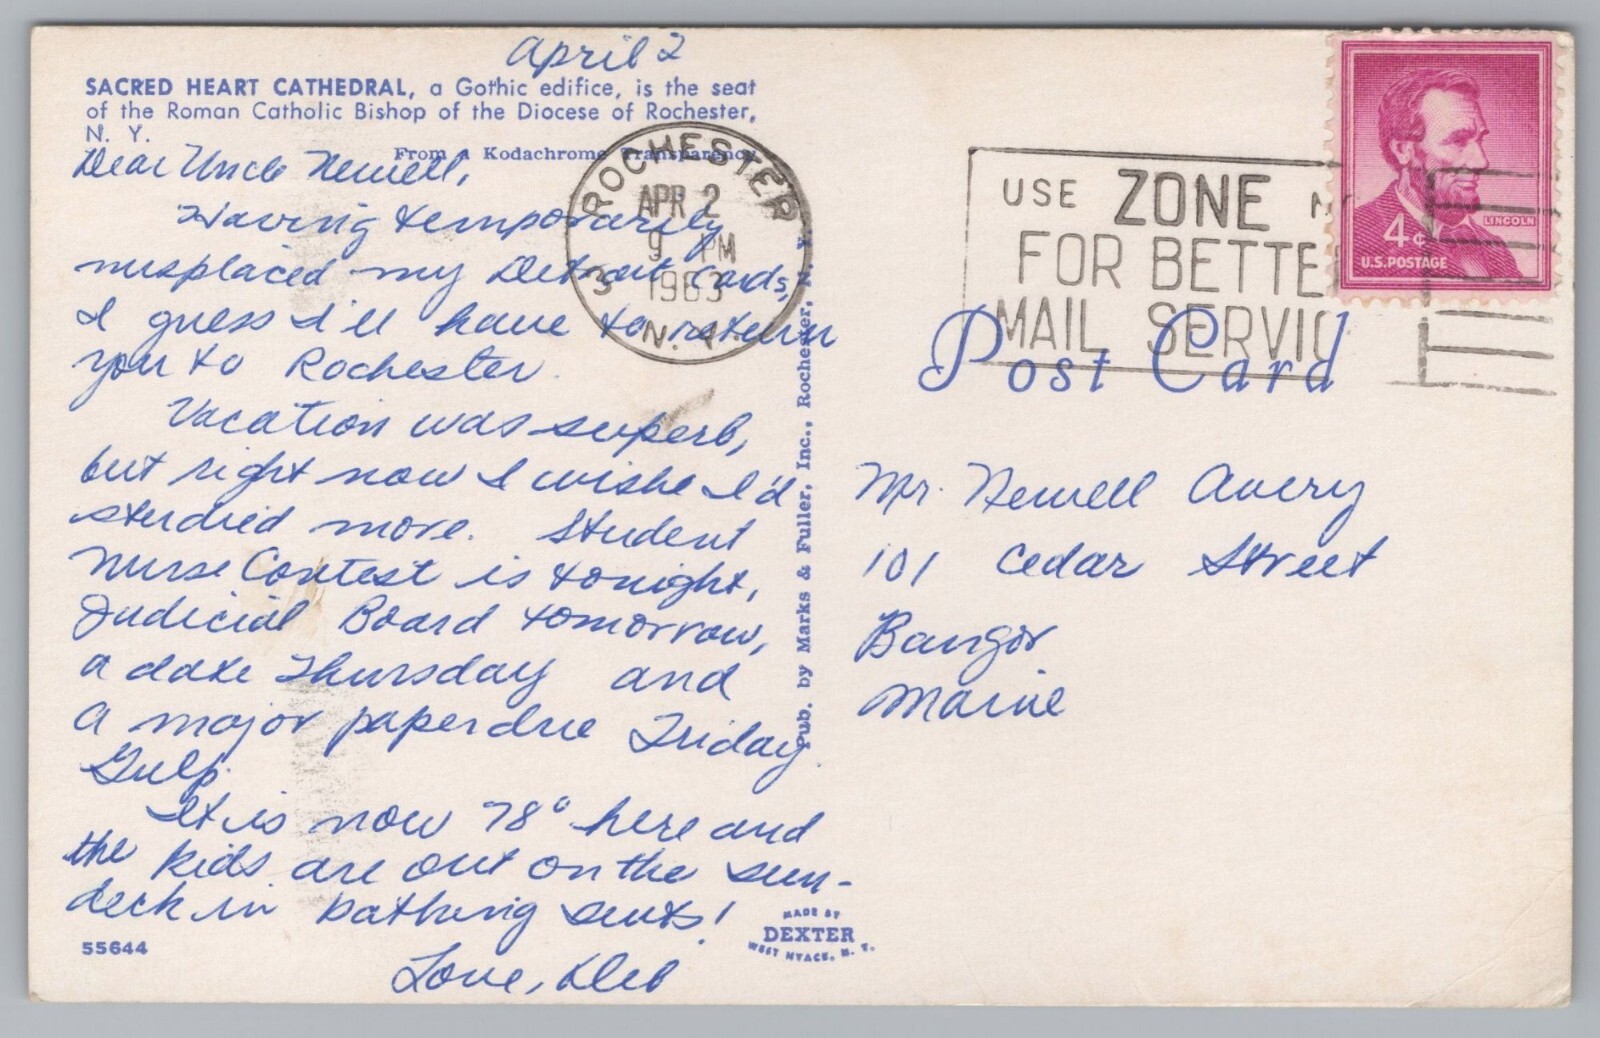 April 2
SACRED HEART CATHEDRAL, a Gothic edifice, is the seat
of the Roman Catholic Bishop of the Diocese of Rochester,
N. Y.
From a Kodachrome Transparency
Dear Uncle Newell,
Having temporarily
misplaced my Detroit cards,
I guess I'll have to return
you to Rochester.
Vacation was superb,
but right now I wishe I'd
studied more. Student
Nurse Contest is tonight,
Judicial Board tomorrow,
a date Thursday and
a major paper due Friday.
Gulp.
It is now 78° here and
the kids are out on the sun-
deck in bathing suits!
Love, Deb
55644
MADE BY
DEXTER
WEST NYACK, N. Y.
Pub. by Marks & Fuller, Inc., Rochester, N. Y.
ROCHESTER
APR 2
9 PM
1963
3 N. Y.
USE ZONE N
FOR BETTE
MAIL SERVIC
LINCOLN
4¢
U.S. POSTAGE
Post Card
Mr. Newell Avery
101 Cedar Street
Bangor
Maine